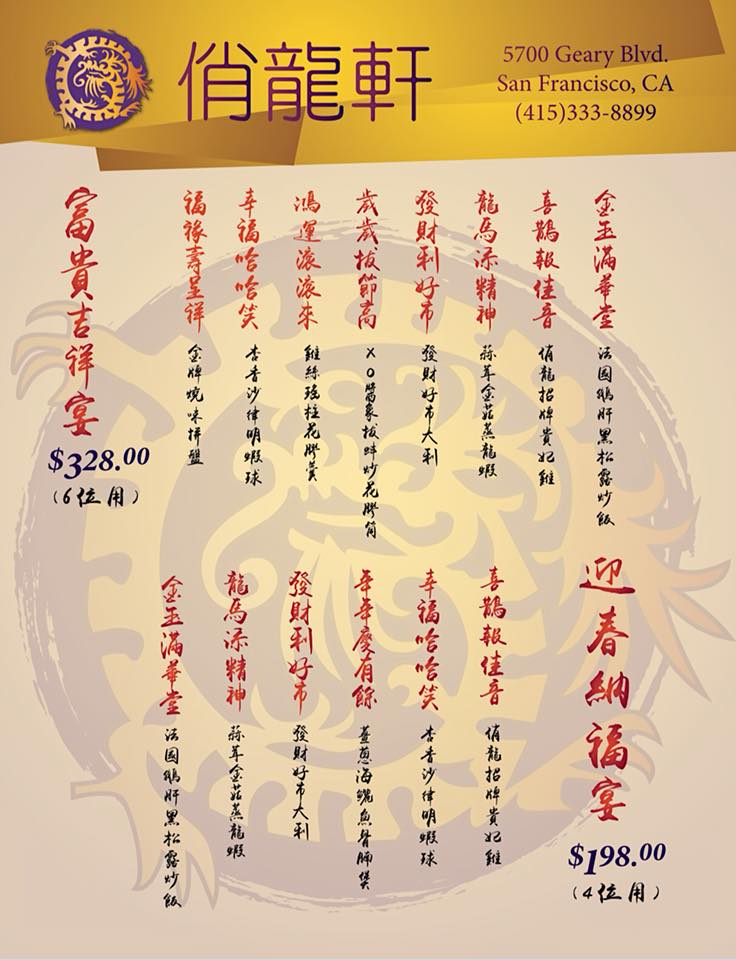 俏龍軒
5700 Geary Blvd.
San Francisco, CA
(415)333-8899
富貴吉祥宴
$328.00
(6位用)
福祿壽呈祥
金牌燒味拼盤
幸福哈哈笑
杏香沙律明蝦球
鴻運滾滾來
雞絲瑤柱花膠羹
歲歲拔節高
XO醬象拔蚌炒花膠筒
發財利好市
發財好市大利
龍馬添精神
蒜茸金菇蒸龍蝦
喜鵲報佳音
俏龍招牌貴妃雞
金玉滿華堂
法國鵝肝黑松露炒飯
迎春納福宴
$198.00
(4位用)
喜鵲報佳音
俏龍招牌貴妃雞
幸福哈哈笑
杏香沙律明蝦球
年年慶有餘
薑蔥海鱺魚骨腩煲
發財利好市
發財好市大利
龍馬添精神
蒜茸金菇蒸龍蝦
金玉滿華堂
法國鵝肝黑松露炒飯